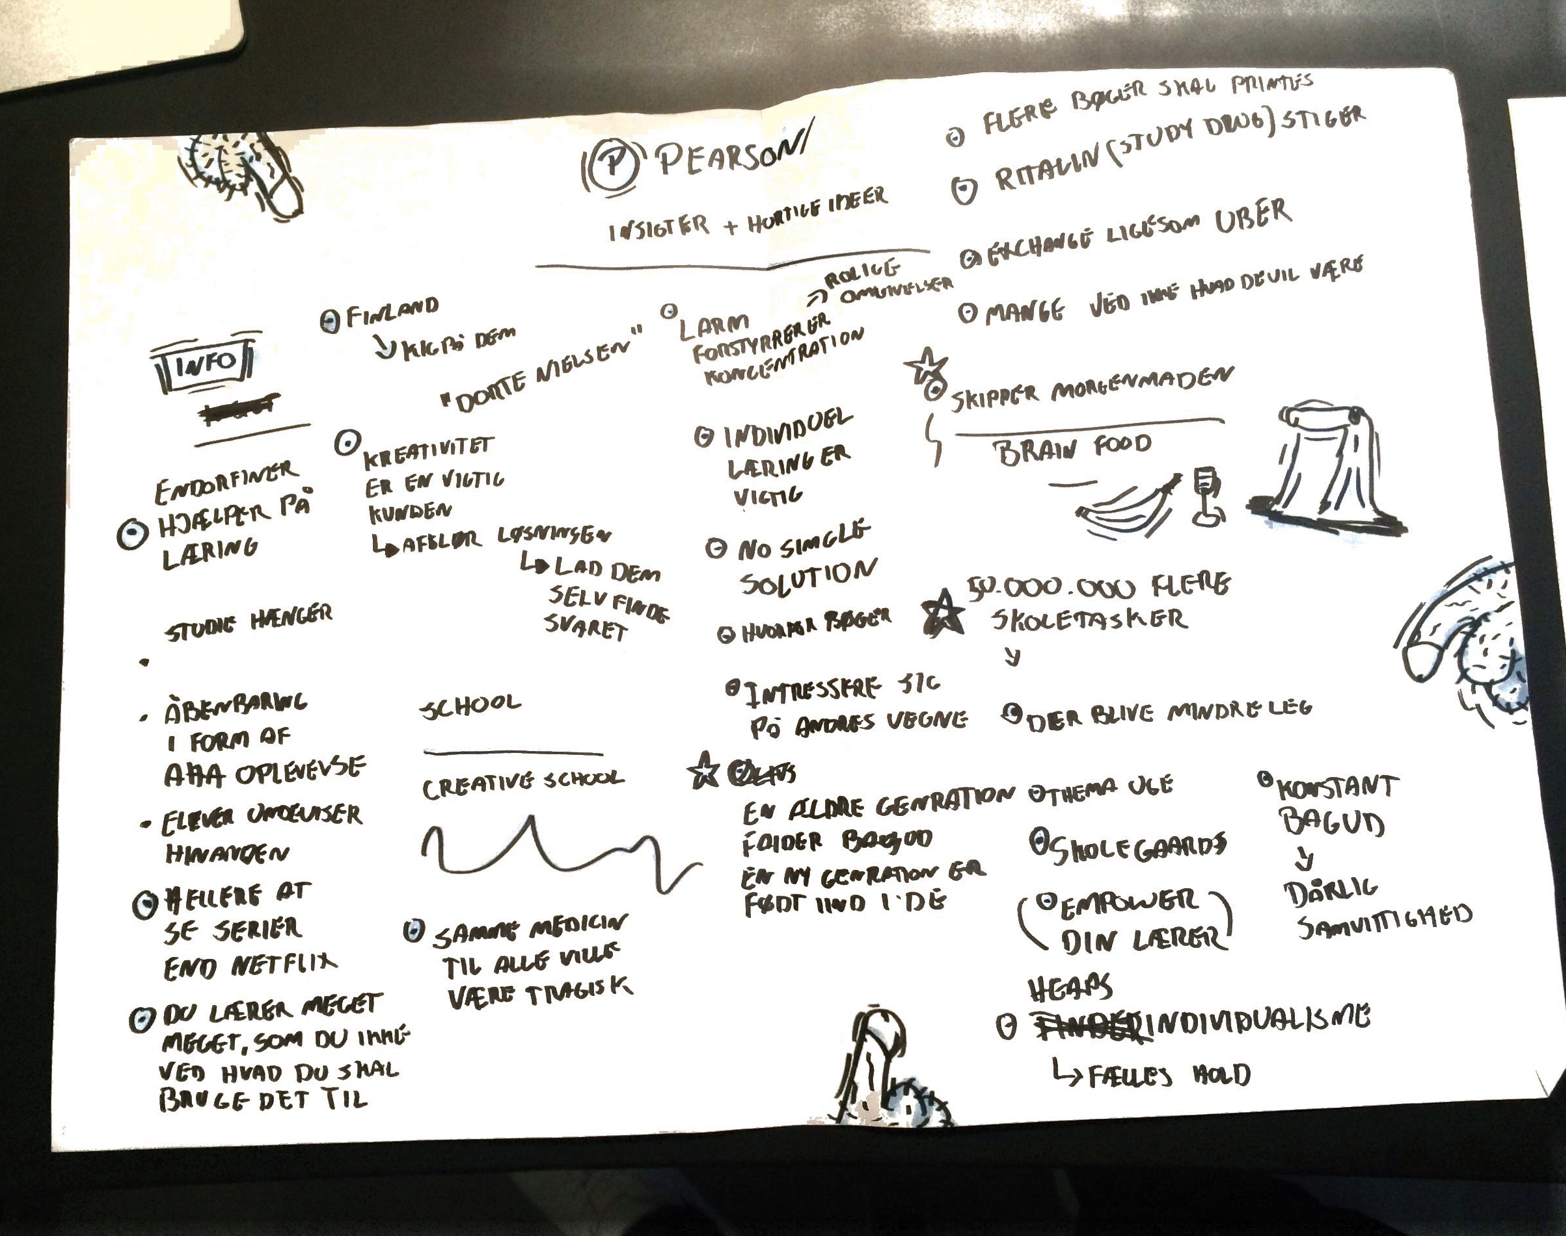 P PEARSON
INSIGTER + HURTIGE IDEER
INFO
ENDORFINER
HJÆLPER PÅ
LÆRING
STUDIE HÆNGER
ÅBENBARING
I FORM AF
AHA OPLEVELSE
ELEVER UNDEVISER
HINANDEN
HELLERE AT
SE SERIER
END NETFLIX
DU LÆRER MEGET
MEGET, SOM DU IKKE
VED HVAD DU SKAL
BRUGE DET TIL
FINLAND
KIG PÅ DEM
"DORTE NIELSEN"
KREATIVITET
ER EN VIGTIG
KUNDEN
AFSLØR LØSNINGEN
LAD DEM
SELV FINDE
SVARET
SCHOOL
CREATIVE SCHOOL
SAMME MEDICIN
TIL ALLE VILLE
VÆRE TRAGISK
ROLIGE
OMGIVELSER
LARM
FORSTYRRERER
KONCENTRATION
INDIVIDUEL
LÆRING ER
VIGTIG
NO SINGLE
SOLUTION
HVORFOR BØGER
INTRESSERE SIG
PÅ ANDRES VEGNE
EN ÆLDRE GENRATION
FALDER BAGUD
EN NY GENRATION ER
FØDT IND I DE
FLERE BØGER SKAL PRINTES
RITALIN (STUDY DRUG) STIGER
EXCHANGE LIGESOM UBER
MANGE VED IKKE HVAD DE VIL VÆRE
SKIPPER MORGENMADEN
BRAIN FOOD
50.000.000 FLERE
SKOLETASKER
DER BLIVE MINDRE LEG
THEMA UGE
SKOLEGAARDS
(EMPOWER
DIN LÆRER)
HEAPS
INDIVIDUALISME
FÆLLES HOLD
KONSTANT
BAGUD
DÅRLIG
SAMVITTIGHED